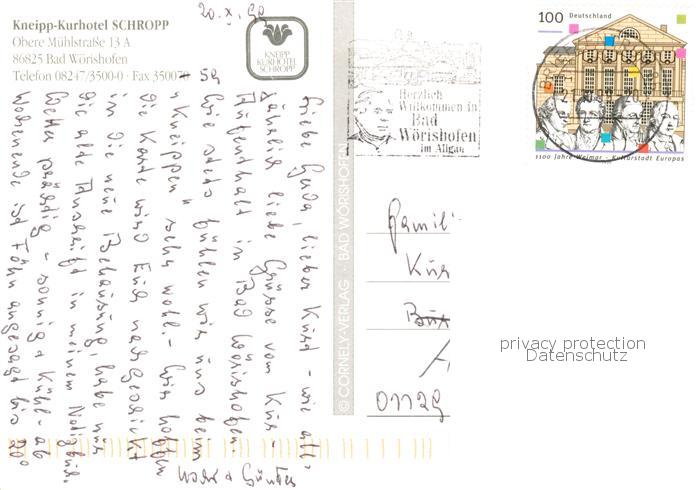 Kneipp-Kurhotel SCHROPP
Obere Mühlstraße 13 A
86825 Bad Wörishofen
Telefon 08247/3500-0 · Fax 350070 59
20.X.99
KNEIPP
KURHOTEL
SCHROPP
Liebe Gerda, lieber Kurt – wie all-
jährlich liebe Grüsse vom Kur-
Aufenthalt in Bad Wörishofen.
Wie stets fühlen wir uns beim
"Kneippen" sehr wohl. – Wir hoffen
die Karte wird Euch nachgeschickt
in die neue Behausung, habe nur
die alte Anschrift in meinem Notizbuch.
Wetter prächtig – sonnig + kühl – ab
Wochenende ist Föhn angesagt bis 20°
+ Günter
© CORNELY-VERLAG · BAD WÖRISHOFEN
Herzlich
Willkommen in
Bad
Wörishofen
im Allgäu
100 Deutschland
1100 Jahre Weimar - Kulturstadt Europas
Famili
Kur
01129
privacy protection
Datenschutz